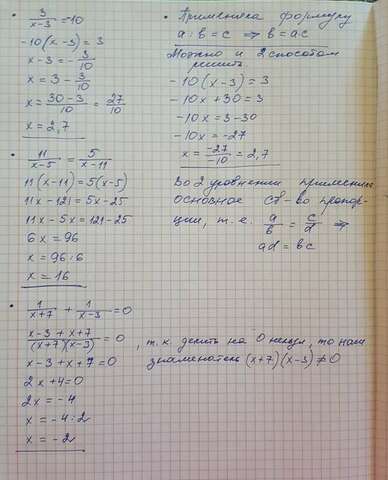 3/(x-3) = -10
-10(x-3) = 3
x-3 = -3/10
x = 3 - 3/10
x = (30-3)/10 = 27/10
x = 2,7
Применяя формулу
a : b = c ⇒ b = ac
Можно и 2 способом
решить
-10(x-3) = 3
-10x + 30 = 3
-10x = 3 - 30
-10x = -27
x = -27/-10 = 2,7
11/(x-5) = 5/(x-11)
11(x-11) = 5(x-5)
11x - 121 = 5x - 25
11x - 5x = 121 - 25
6x = 96
x = 96 : 6
x = 16
Во 2 уравнении применяем
основное св-во пропор-
ции, т. е. a/b = c/d ⇒
ad = bc
1/(x+7) + 1/(x-3) = 0
(x-3+x+7)/((x+7)(x-3)) = 0, т. к. делить на 0 нельзя, то наш
знаменатель (x+7)(x-3) ≠ 0
x-3+x+7 = 0
2x + 4 = 0
2x = -4
x = -4 : 2
x = -2